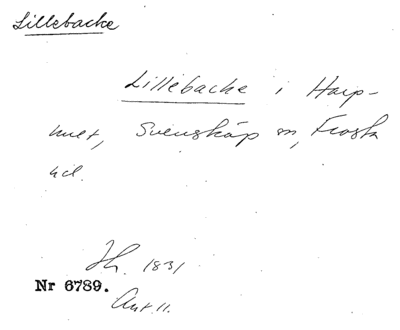 Lillebacke
Lillebacke i Harp-
hult, Svensköp sn, Frosta
hd.
Jh. 1831
Nr 6789.
Ant. 11.